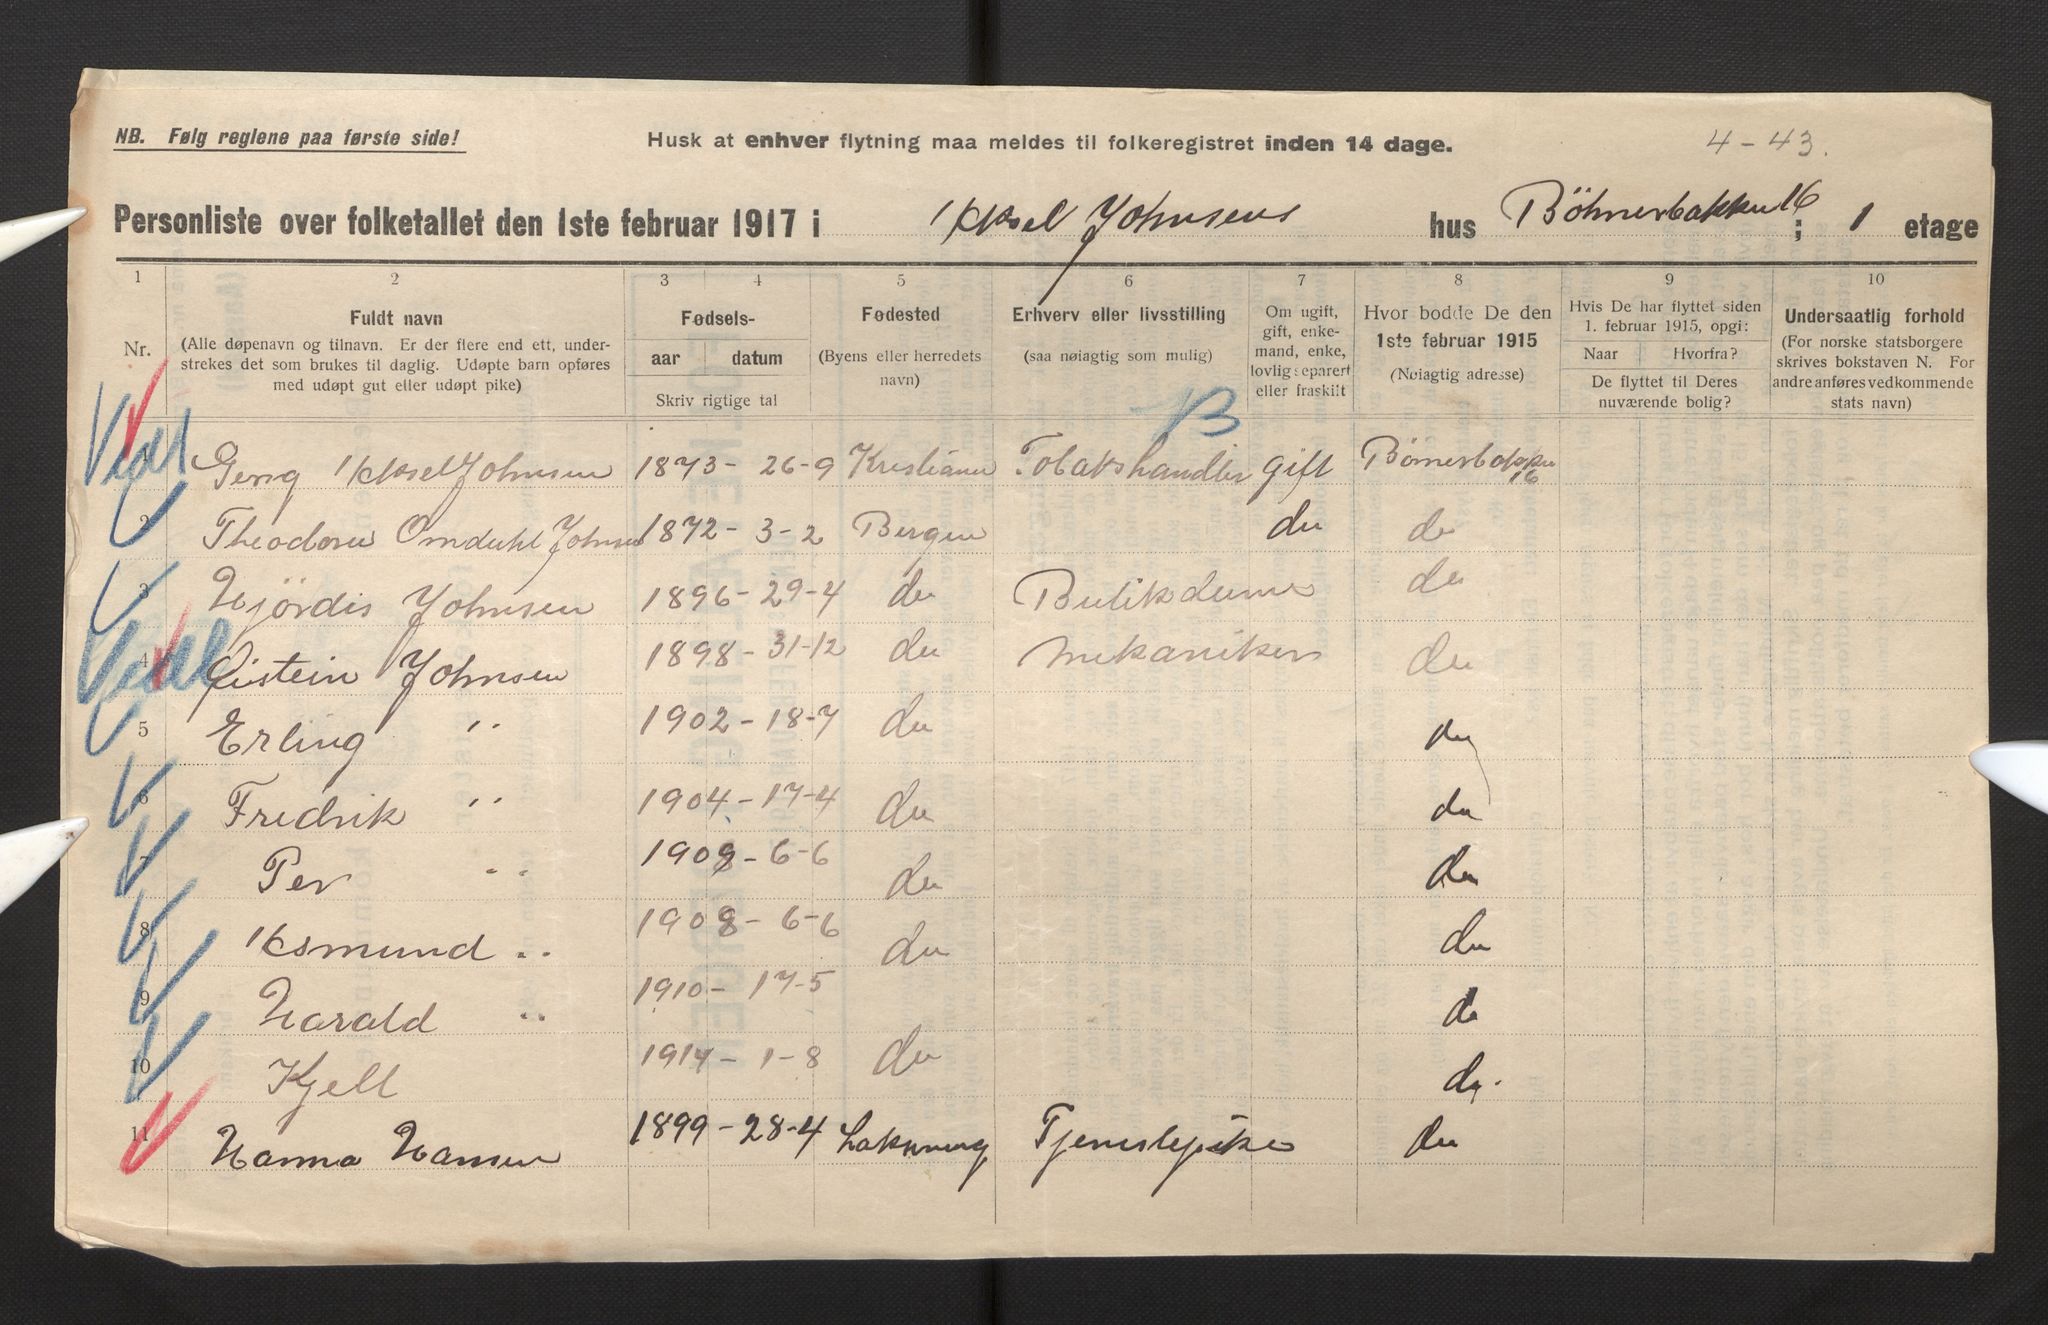 NB. Følg reglene paa første side!
Husk at enhver flytning maa meldes til folkeregistret inden 14 dage.
4 - 43.
Personliste over folketallet den 1ste februar 1917 i Aksel Johnsens hus Böhmerbakken 16 ; 1 etage
1 2 3 4 5 6 7 8 9 10
Nr.
Fuldt navn
(Alle døpenavn og tilnavn. Er der flere end ett, under-
strekes det som brukes til daglig. Udøpte barn opføres
med udøpt gut eller udøpt pike)
Fødsels-
aar datum
Skriv rigtige tal
Fødested
(Byens eller herredets
navn)
Erhverv eller livsstilling
(saa nøiagtig som mulig)
Om ugift,
gift, enke-
mand, enke,
lovlig separert
eller fraskilt
Hvor bodde De den
1ste februar 1915
(Nøiagtig adresse)
Hvis De har flyttet siden
1. februar 1915, opgi:
Naar Hvorfra?
De flyttet til Deres
nuværende bolig?
Undersaatlig forhold
(For norske statsborgere
skrives bokstaven N. For
andre anføres vedkommende
stats navn)
B
1 Georg Aksel Johnsen 1873 - 26-9 Kristiania Tobakshandler gift Börnerbakken 16
2 Theodora Omdahl Johnsen 1872 - 3-2 Bergen do do
3 Hjördis Johnsen 1896 - 29-4 do Butikdame do
4 Øistein Johnsen 1898 - 31-12 do Mekaniker do
5 Erling " 1902 - 18-7 do do
6 Fredrik " 1904 - 17-4 do do
7 Per " 1908 - 6-6 do do
8 Asmund " 1908 - 6-6 do do
9 Harald " 1910 - 17-5 do
10 Kjell 1914 - 1-8 do do.
11 Hanna Hansen 1899 - 28-4 Tjenestepike do